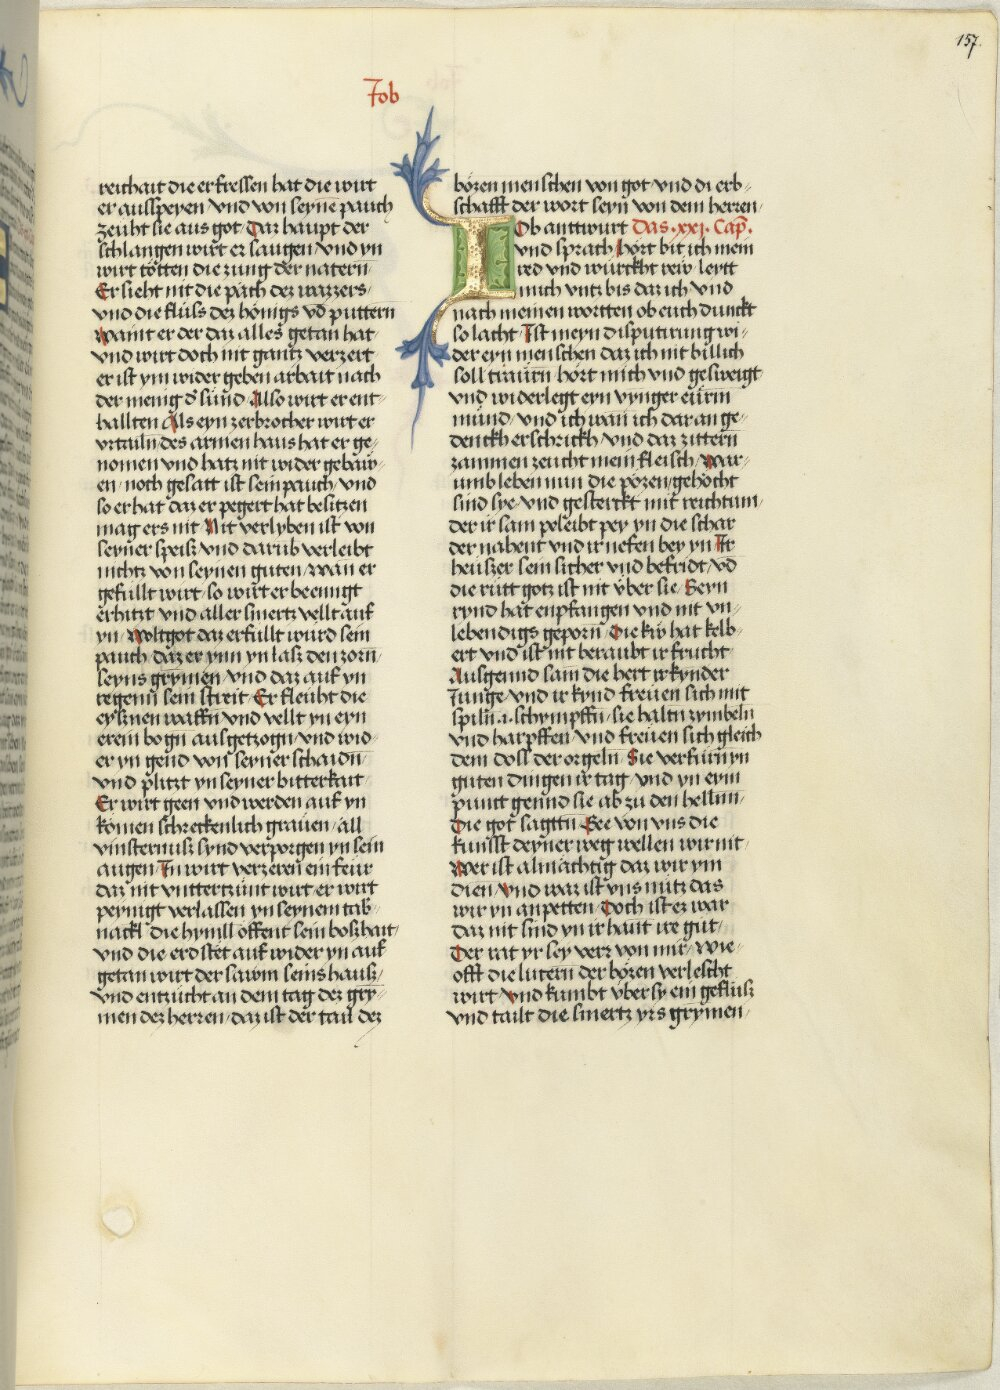 157
Job
reichait die er fressen hat die wirt
er ausspeyen vnd von seyne pauch
zeuht sie aus got Daz haupt der
schlangen wirt er saugen vnd yn
wirt tötten die zung der natern
Er sieht nit die päch dez wazzers
vnd die flüss dez hönigs vō puttern
Waint er der daz alles getan hat
vnd wirt doch nit gantz verzert
er ist ym wider geben arbait nach
der menig d̕ sünd Also wirt er ent-
hallten Als eyn zerbrocher wirt er
vrtailn des armen haus hat er ge-
nomen vnd hatz nit wider gebaw-
en noch gesatt ist sein pauch vnd
so er hat daz er pegert hat besitzen
mag ers nit Nit verlyben ist von
seyner speisz vnd darüb verleibt
nichtz von seynen guten wan er
gefüllt wirt so wirt er beenngt
erhitzt vnd aller smertz vellt auf
yn Wolt got daz erfüllt würd sein
pauch daz er ynn yn lasz den zorn
seyns grymen vnd daz auf yn
regenn sein streit Er fleüht die
eysznen waffn vnd vellt yn eyn
erein bogn ausgetzogn vnd wid-
er yn gend von seyner schaidn
vnd plitzt yn seyner bitterkait
Er wirt geen vnd werden auf yn
komen schreckenlich grauen all
vinsternusz synd verporgen yn sein
augen In wirt verzeren ein feür
daz nit vnttertzünt wirt er wirt
peynigt verlassen yn seynem tab-
nackl die hymll offent sein boszhait
vnd die erd stet auf wider yn auf
getan wirt der sawm seins hausz
vnd entzücht an dem tag dez gry-
men dez herren daz ist der tail dez
bözen menschen von got vnd di erb-
schafft der wort seyn von dem herren
Ob anttwurt Das .xxj. Cap̄.
vnd sprach hört bit ich mein
red vnd würckht rew leytt
mich vntz bis daz ich vnd
nach meinen wortten ob euch dunckt
so lacht Ist meyn disputirung wi-
der eyn menschen daz ich nit billich
soll traurn hört mich vnd gesweigt
vnd widerlegt eyn vynger eürm
mund vnd ich wan ich dar an ge-
denckh erschrickh vnd daz zittern
zammen zeucht mein fleisch War-
umb leben nun die pözen gehöcht
sind sye vnd gesterckt mit reichtum
der ir sam peleibt pey yn die schar
der nahent vnd ir nefen bey yn Ir
heüszer sein sicher vnd befridt vō
die rütt gotz ist nit vber sie Seyn
rynd hat enpfangen vnd nit vn-
lebendigs geporn Die kw hat kelb-
ert vnd ist nit beraubt ir frucht
Ausgennd sam die hert ir kynder
Junge vnd ir kynd freüen sich mit
spiln .i. schympffn sie haltn zymbeln
vnd harpffen vnd freüen sich gleich
dem doll der orgeln Sie verfürn yn
guten dingen ir tag vnd yn eym
punct gennd sie ab zu den hellnn
Die got sagttn See von vns die
kunsst deyner weg wellen wir nit
Wer ist almächtig daz wir ym
dien vnd waz ist vns nütz das
wir yn anpetten Doch ist ez war
daz nit sind yn ir hant ire gut
Der rat yr sey verz von mir Wie-
offt die lutern der bözen verlescht
wirt vnd kumbt vber sy ein geflüsz
vnd tailt die smertz yrs grymen